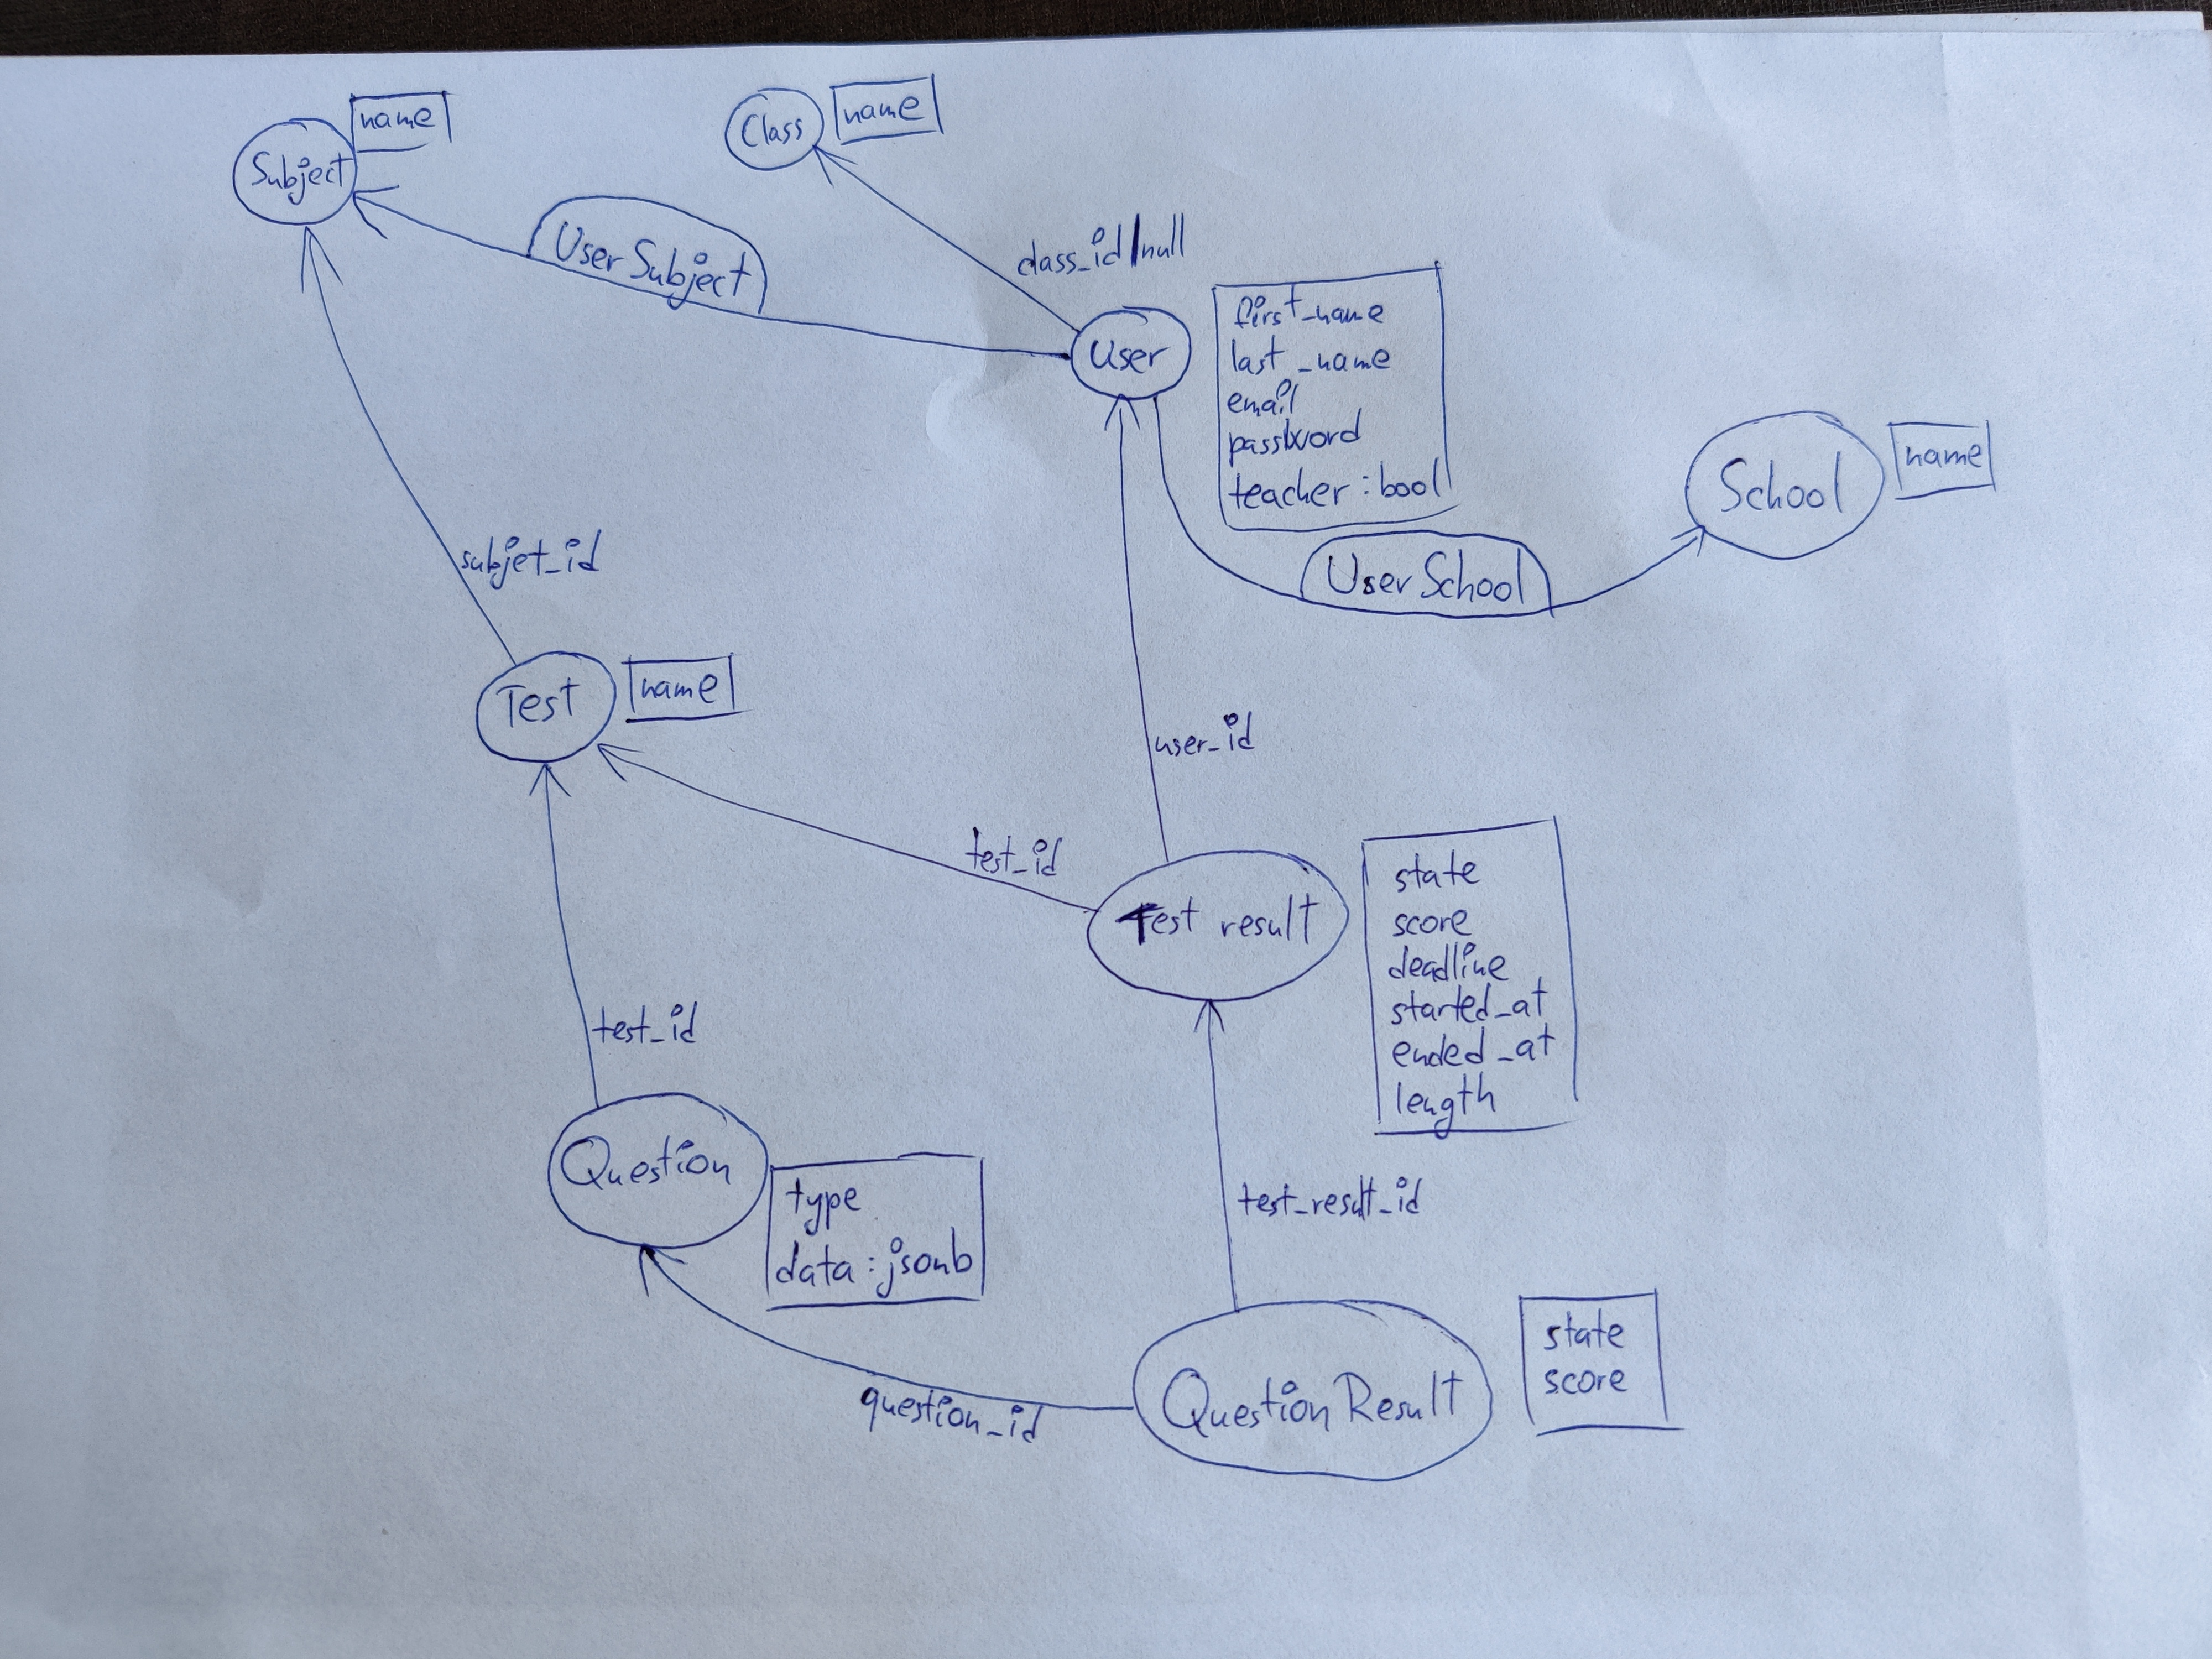 name
Subject
Class
name
User Subject
class_id/null
User
first_name
last_name
email
password
teacher : bool
School
name
User School
subjet_id
Test
name
user_id
test_id
Test result
state
score
deadline
started_at
ended_at
length
test_id
Question
type
data : jsonb
test_result_id
question_id
Question Result
state
score